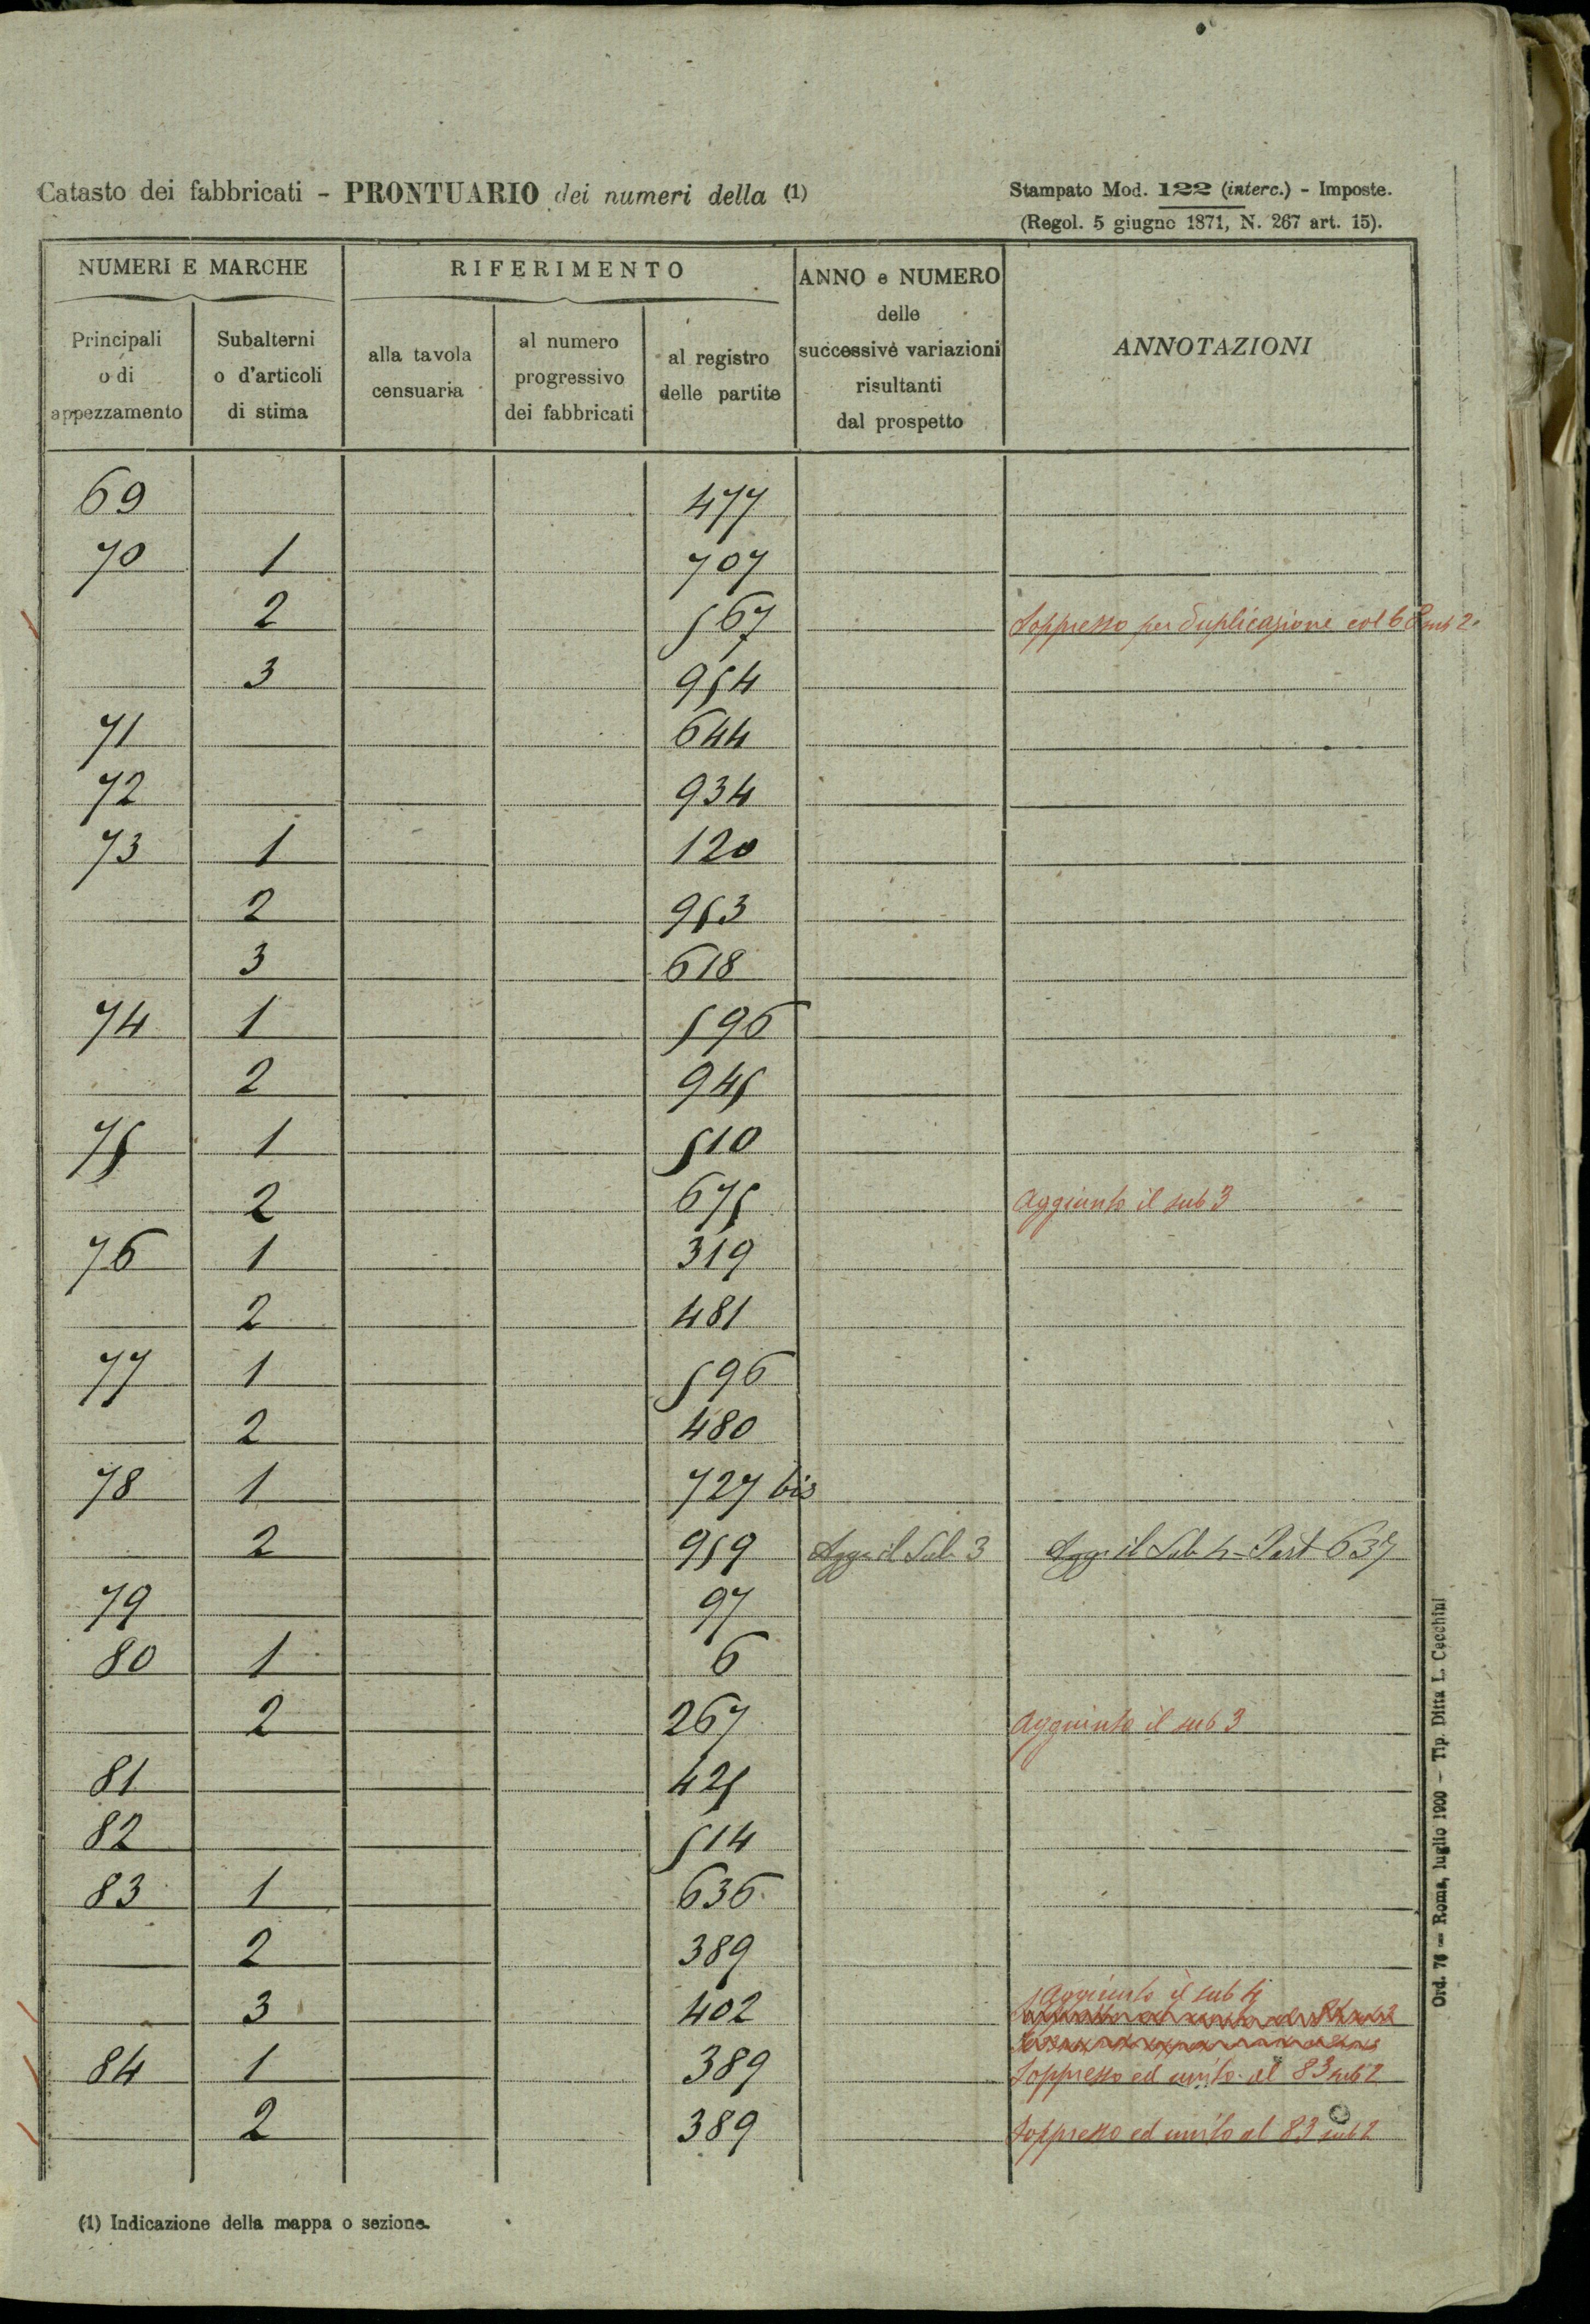 Catasto dei fabbricati - PRONTUARIO dei numeri della (1)
Stampato Mod. 122 (interc.) - Imposte.
(Regol. 5 giugno 1871, N. 267 art. 15).
NUMERI E MARCHE
RIFERIMENTO
ANNO e NUMERO
delle
successive variazioni
risultanti
dal prospetto
ANNOTAZIONI
Principali
o di
appezzamento
Subalterni
o d'articoli
di stima
alla tavola
censuaria
al numero
progressivo
dei fabbricati
al registro
delle partite
69 477
70 1 707
2 567 Soppresso per duplicazione col 68 sub 2.
3 954
71 644
72 934
73 1 120
2 953
3 618
74 1 596
2 945
75 1 510
2 675 Aggiunto il sub 3
76 1 319
2 481
77 1 596
2 480
78 1 727 bis
2 959 Agg. il Sub. 3 Agg. il Sub 4 - Part 637
79 97
80 1 6
2 267 Aggiunto il sub 3
81 425
82 514
83 1 636
2 389
Aggiunto il sub 4
3 402
84 1 389 Soppresso ed unito al 83 sub 2
2 389 Soppresso ed unito al 83 sub 2
(1) Indicazione della mappa o sezione.
Ord. 76 — Roma, luglio 1900 — Tip. Ditta L. Cecchini